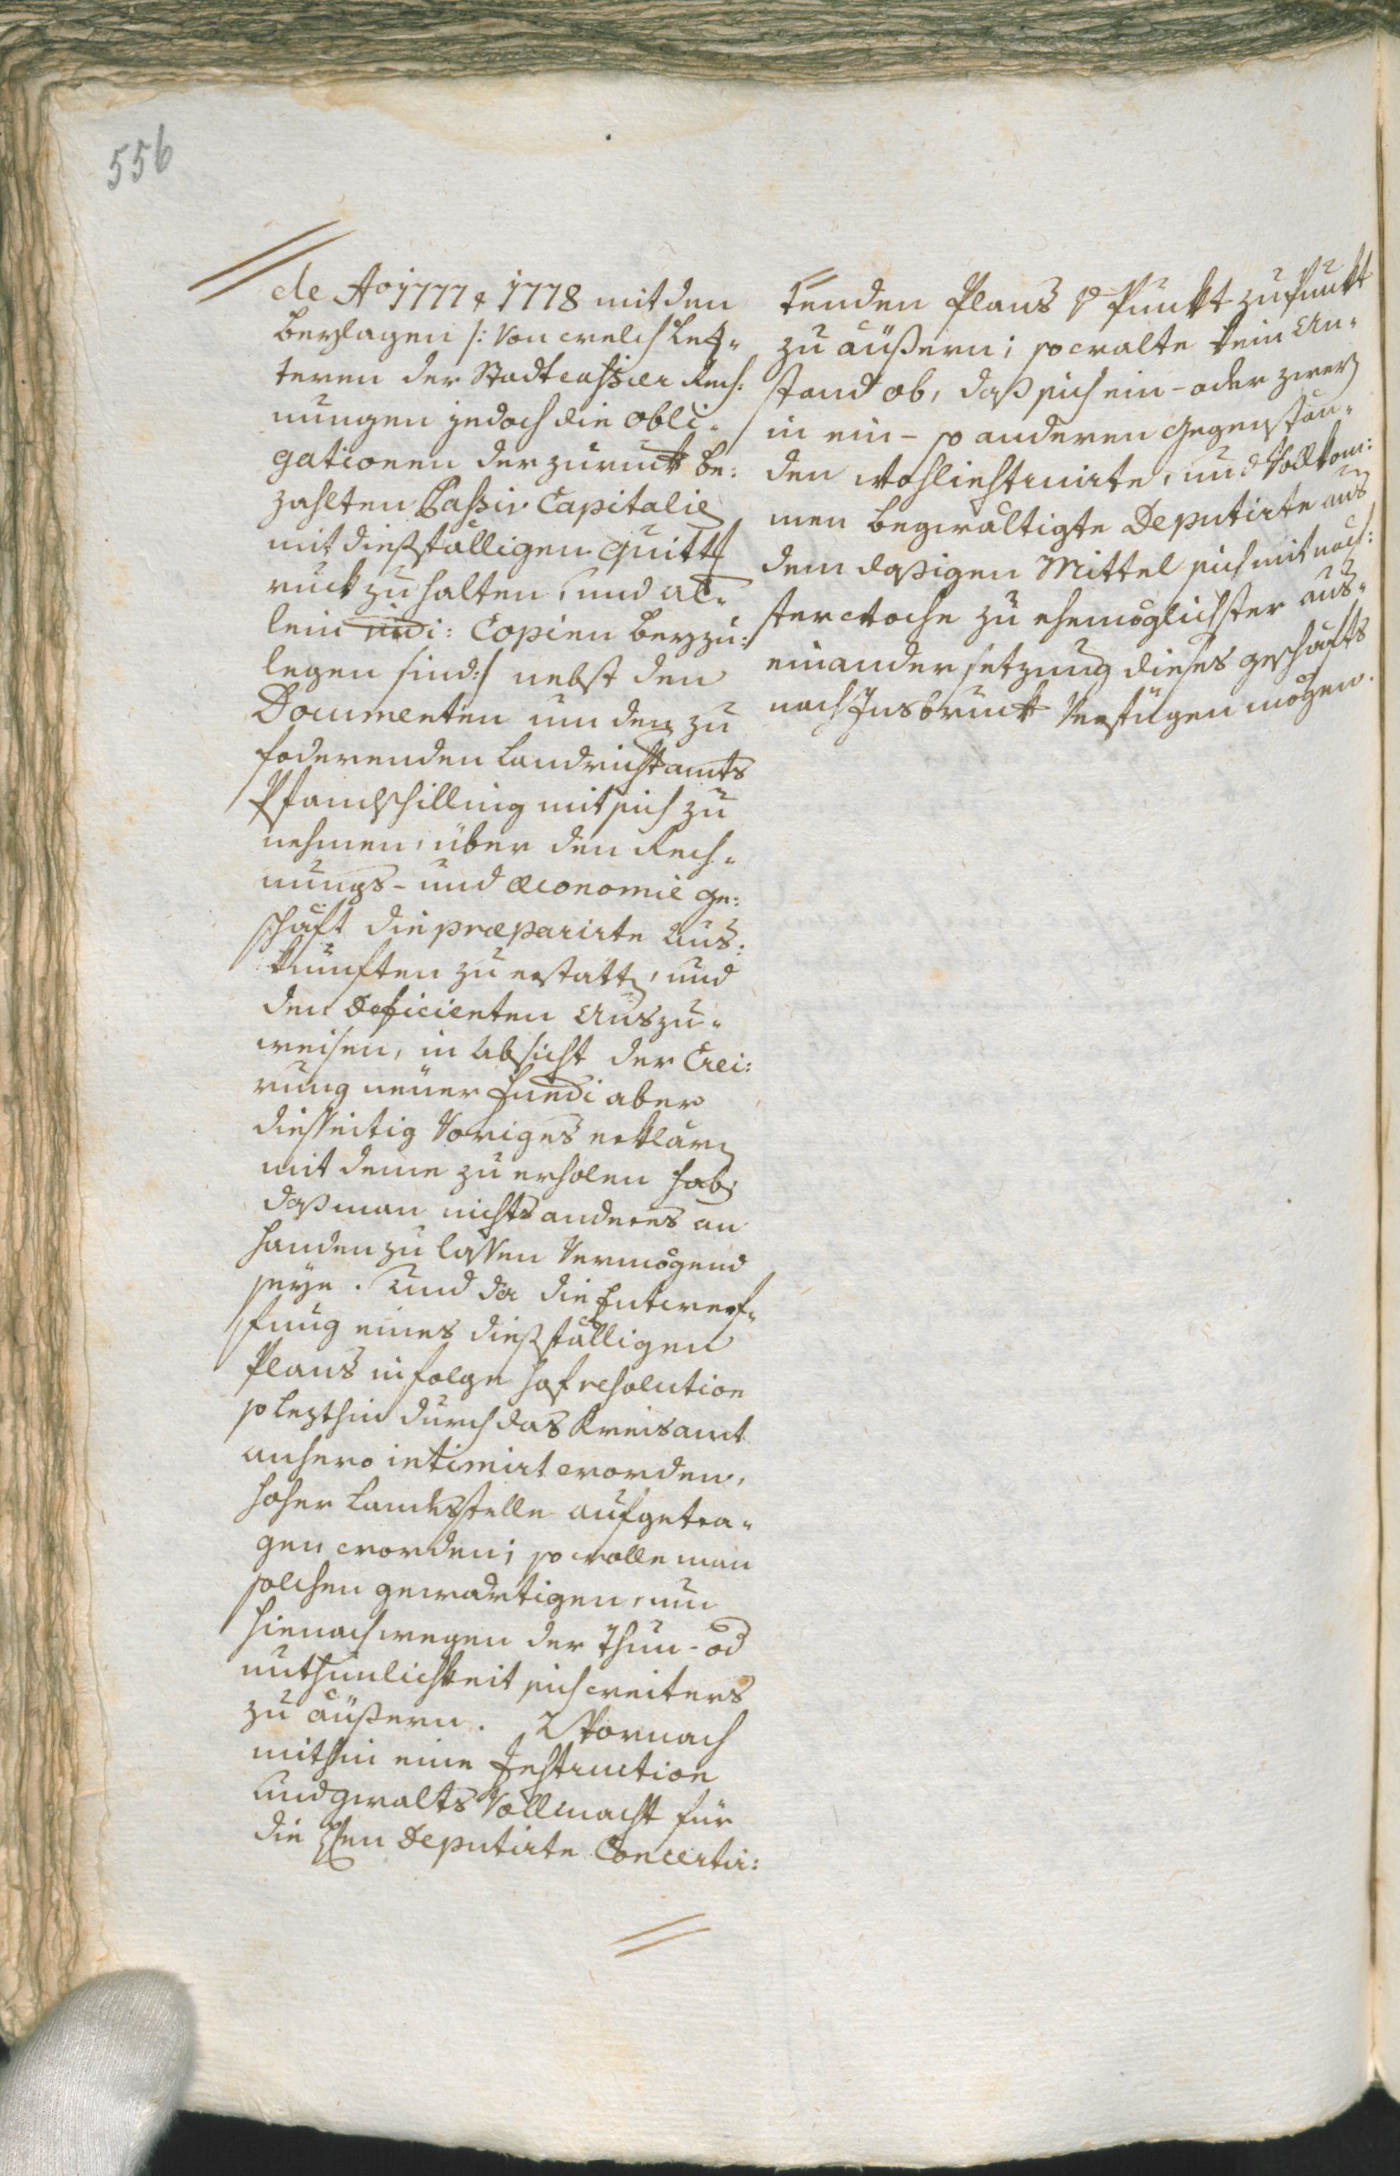 556
de Ao 1777 & 1778 mit den
beylagen /: Von welch letz„
teren der Stadtcassier Rech:
nungen jedoch die obli„
gationen der zuruckt be:
zahlten Passiv Capitalie
mit diesfälligen quitt
ruckzuhalten, und al„
lein vidi: Copien beyzu:
legen sind:/ nebst den
Documenten um den zu
foderenden Landrichtamts
Pfandschilling mit sich zu
nehmen, über den Rech„
nungs- und oeconomie ge:
schäft die præparirte Aus:
künften zu erstatt, und
den Deficienten Auszu„
weisen, in Absicht der Crei:
rung neüer Fundi aber
diesseitig Voriges erklären
mit deme zu erholen hab,
daß man nichts anderes an
handen zu lassen Vermögend
seye. Und da die Entwerf„
fung eines diesfälligen
Plans in folge hofresolution
so lezthin durch das Kreisamt
anhero intimirt worden,
hoher Landsstelle aufgetra„
gen worden; so wolle man
solchen gewärtigen, um
hienach wegen der Thun- od
unthunlichkeit sich weiters
zu äüßern. Wornach
mithin eine Instruction
und gwalts Vollmacht für
die Hen Deputirte Concertir:
tenden Plans Punkt zu Punkt
zu äüßern; so walte kein An„
stand ob, daß sich ein- oder zwey
in ein- so anderen Gegenstän„
den wohlinstruirte, und Vollkom:
men begwältigte Deputirte aus
dem dasigen Mittel sich mit näch:
ster Woche zu ehemöglichster aus„
einandersetzung dieses geschäfts
nach Insbruckt Verfügen mögen.